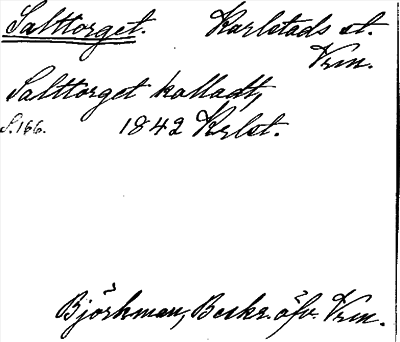 Salttorget. Karlstads st.
Vrm.
Salttorget kalladt,
S. 166. 1842 Krlst.
Björkman, Beskr. öfv. Vrm.